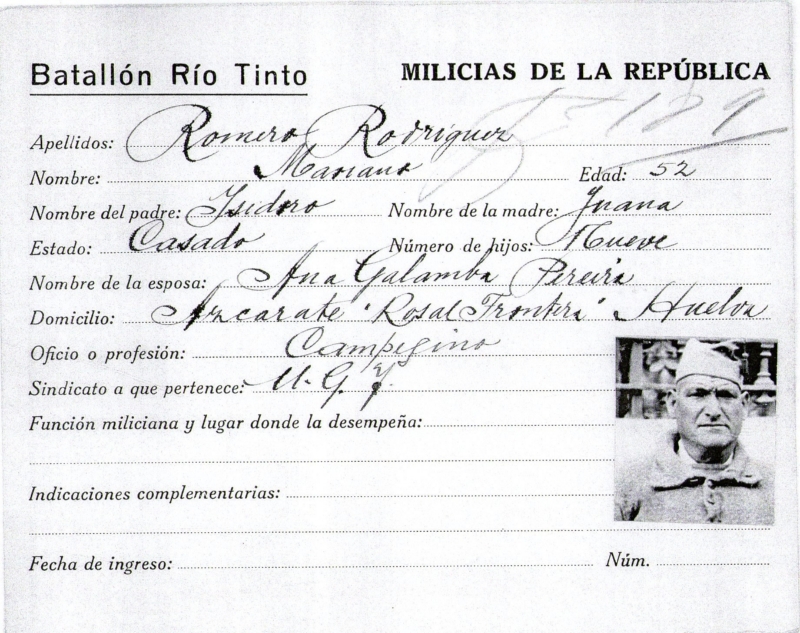 Batallón Río Tinto MILICIAS DE LA REPÚBLICA
189
Apellidos: Romero Rodriguez
Nombre: Mariano Edad: 52
Nombre del padre: Isidoro Nombre de la madre: Juana
Estado: Casado Número de hijos: Nueve
Nombre de la esposa: Ana Galamba Pereira
Domicilio: Azcarate "Rosal Frontera" Huelva
Oficio o profesión: Campesino
Sindicato a que pertenece: U. G. T.
Función miliciana y lugar donde la desempeña:
Indicaciones complementarias:
Fecha de ingreso: Núm.